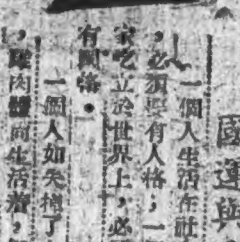 國運與
一個人生活在社
,必須要有人格;一
家屹立於世界上,必
有國格。
一個人如失掉了
,
肉體而生活着,